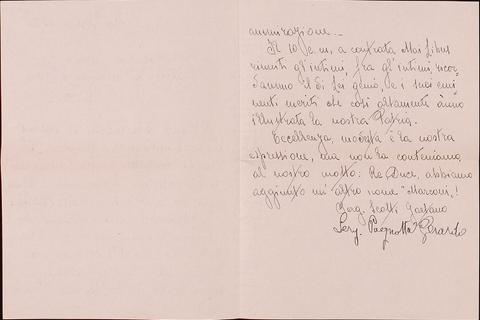 ammirazione._
Il 10 c. m, a contrata Mai Libus
riuniti gl'intimi, fra gl'intimi, ricor=
daremo il di Lei genio, e i suoi emi=
nenti meriti che così altamente ànno
illustrata la nostra Patria.
Eccellenza, modesta è la nostra
espressione, ma non la conteniamo,
al nostro motto: Re Duce, abbiamo
aggiunto un altro nome "Marconi"!
Serg. Scotti Gaetano
Serg. Pagnotta Gerardo